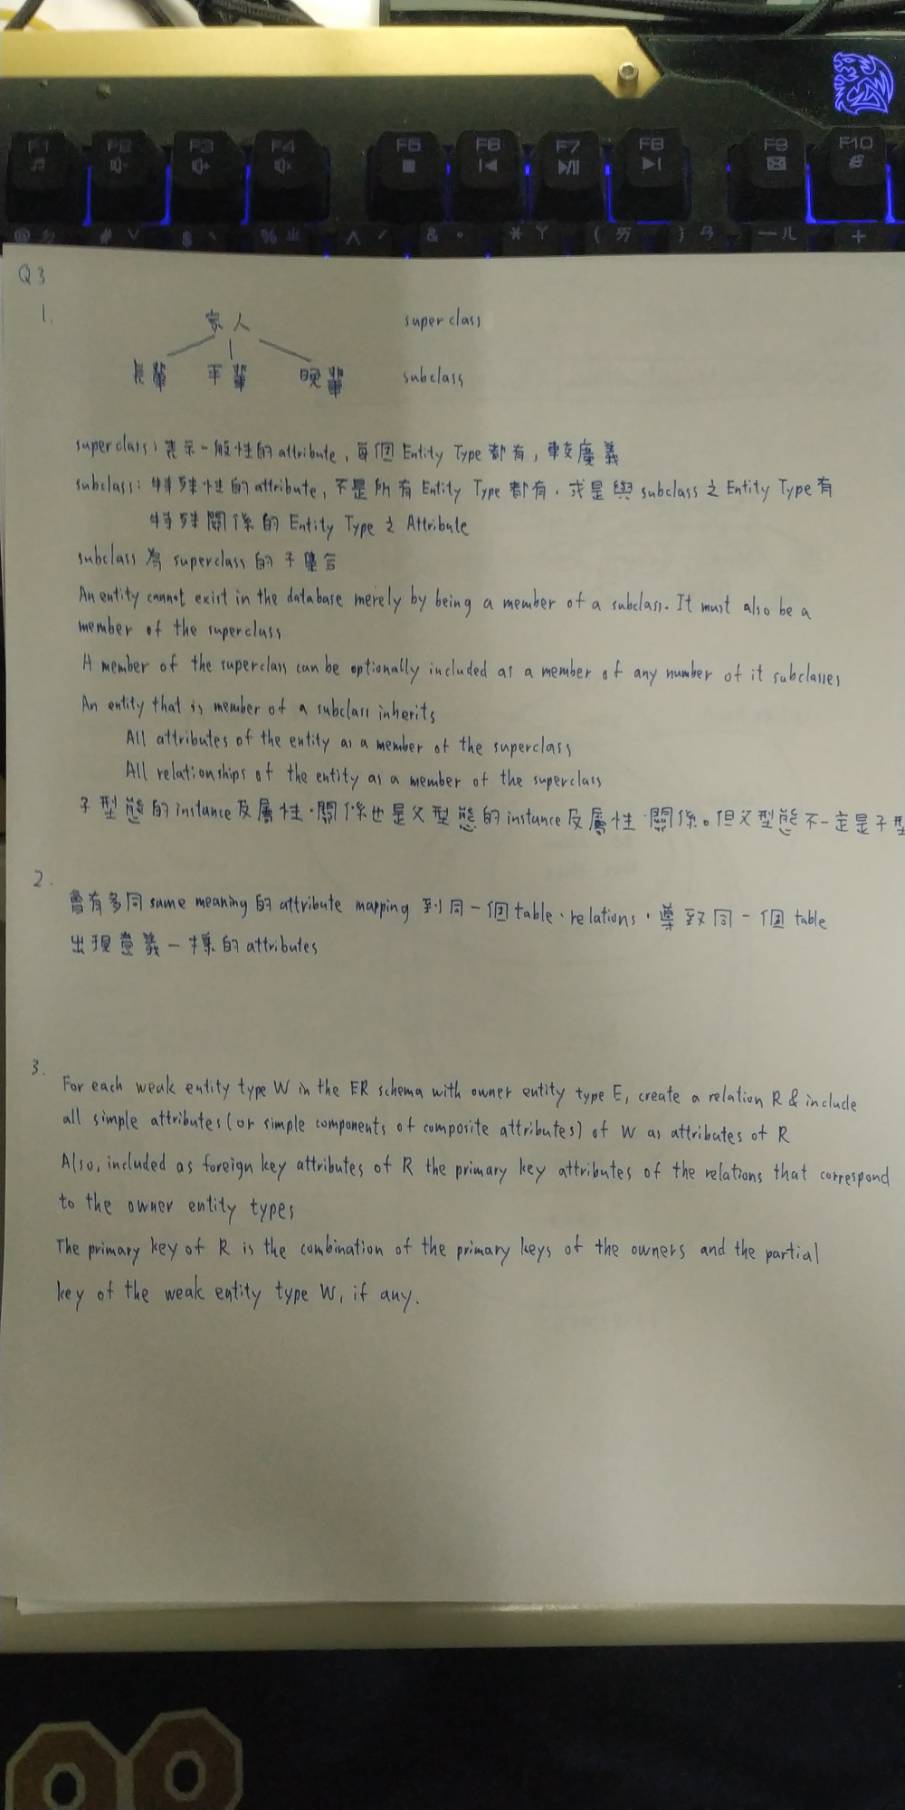 F1 F2 F3 F4 F5 F6 F7 F8 F9 F10
Q3
1.
家人 superclass
長輩 平輩 晚輩 subclass
superclass: 表示一般性的attribute, 每個 Entity Type 都有, 較廣義
subclass: 特殊性的attribute, 不是所有 Entity Type 都有. 或是與 subclass 之 Entity Type 有
特殊關係的 Entity Type 之 Attribute
subclass 為 superclass 的子集合
An entity cannot exist in the database merely by being a member of a subclass. It must also be a
member of the superclass
A member of the superclass can be optionally included as a member of any number of it subclasses
An entity that is member of a subclass inherits
All attributes of the entity as a member of the superclass
All relationships of the entity as a member of the superclass
子型態的instance及屬性、關係也是父型態的instance及屬性、關係。但父型態不一定是子型
2.
會有多同 same meaning 的 attribute mapping 到同一個 table、relations, 導致同一個 table
出現意義一樣的 attributes
3.
For each weak entity type W in the ER schema with owner entity type E, create a relation R & include
all simple attributes (or simple components of composite attributes) of W as attributes of R
Also, included as foreign key attributes of R the primary key attributes of the relations that correspond
to the owner entity types
The primary key of R is the combination of the primary keys of the owners and the partial
key of the weak entity type W, if any.